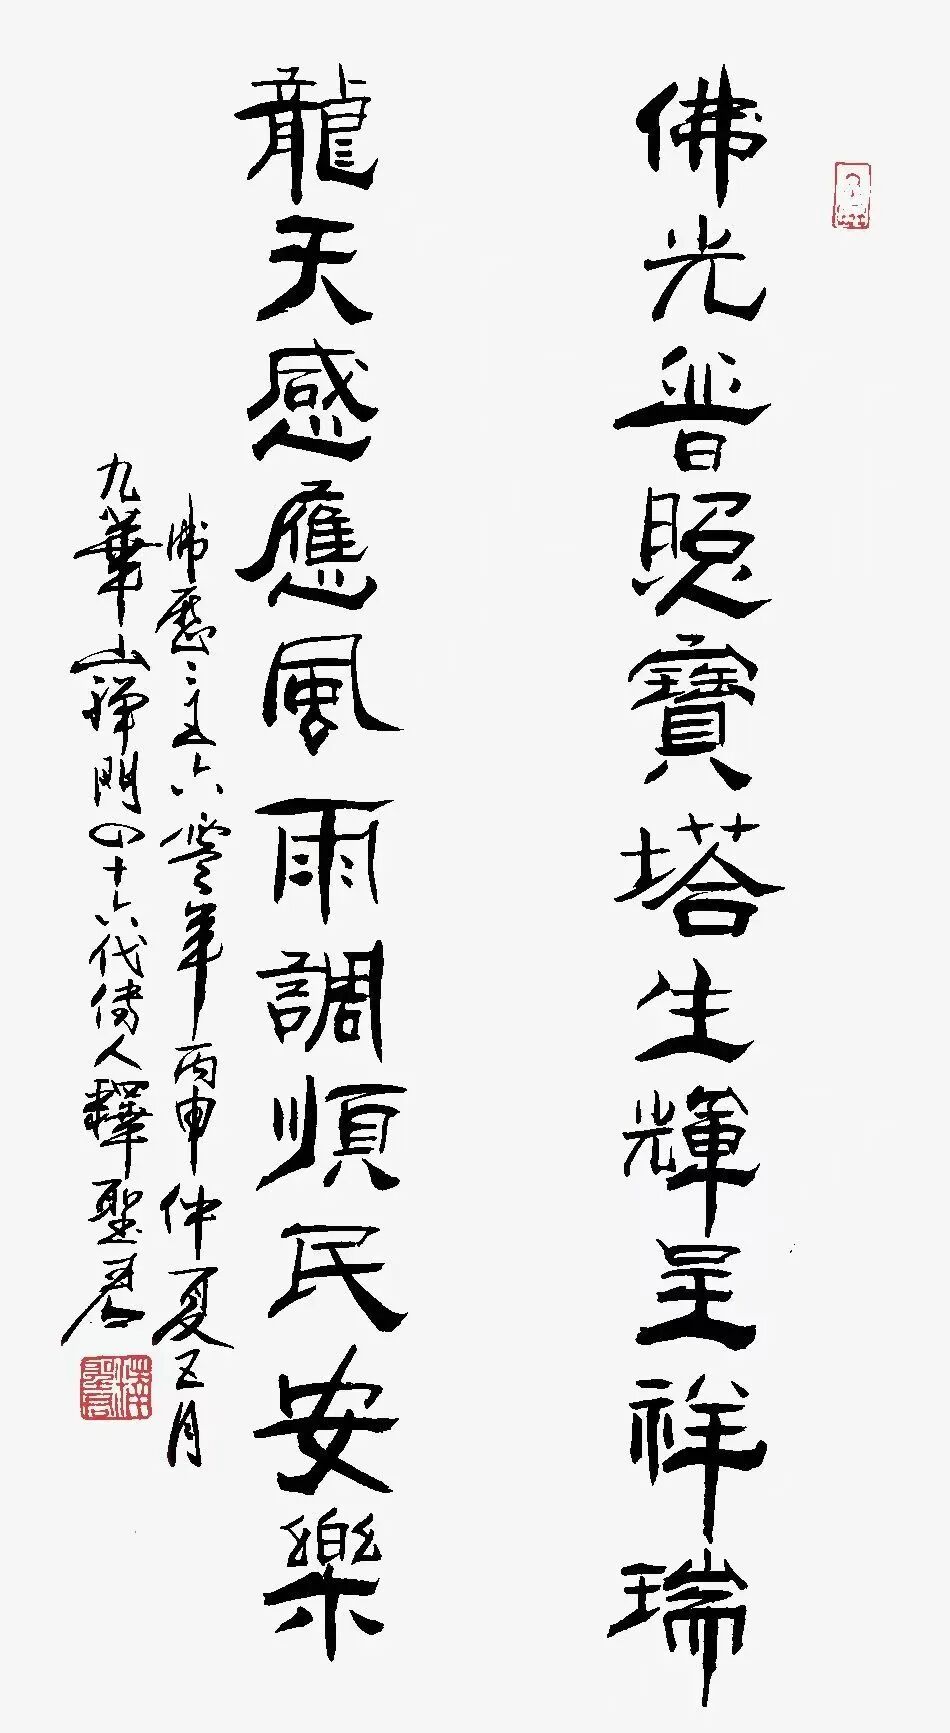 佛光普照寶塔生輝呈祥瑞
龍天感應風雨調順民安樂
佛歷二五六零年丙申仲夏五月
九華山禪門四十六代傳人釋聖